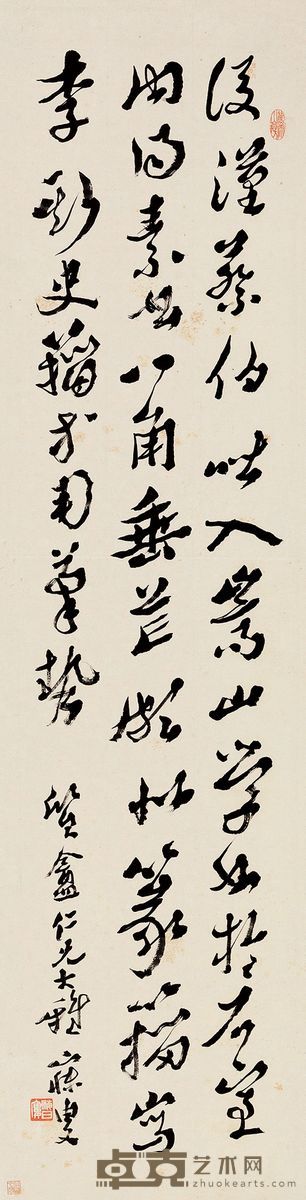 後漢蔡伯喈入嵩山學書於石室
內得素書八角垂芒頗似篆籀寫
李斯史籀等用筆勢
仁兄大雅 寐叟
卓克艺术网
www.zhuokearts.com